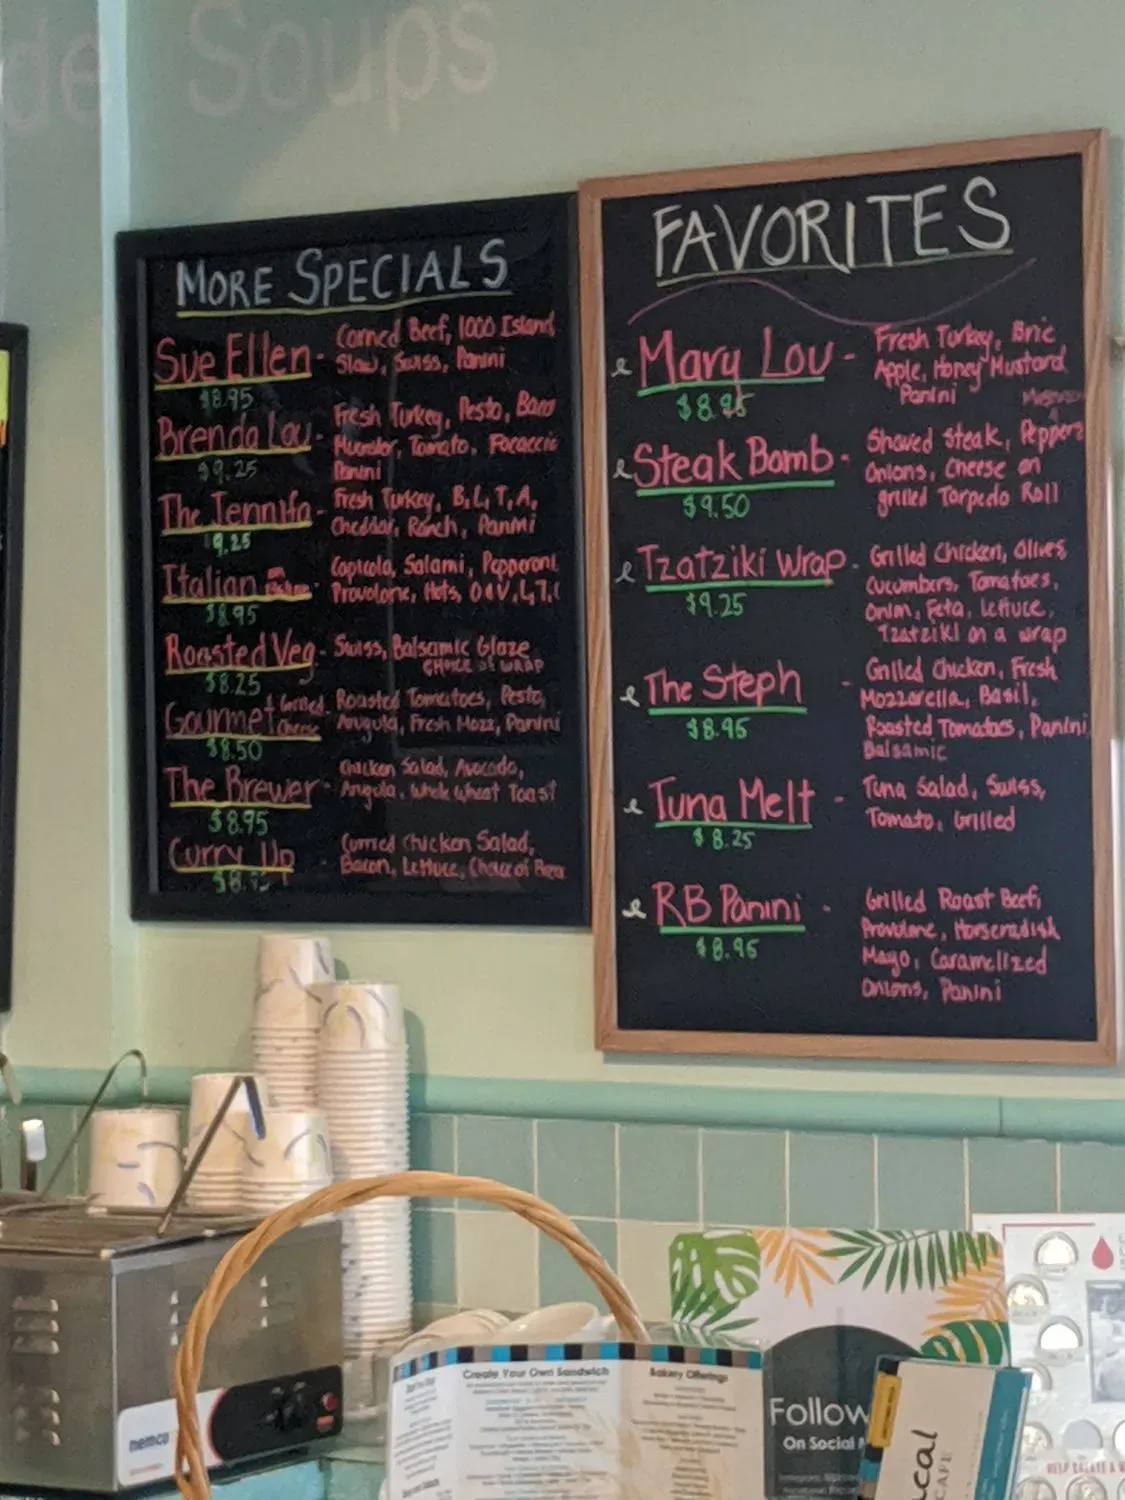 de Soups
MORE SPECIALS
Sue Ellen - Corned Beef, 1000 Island
Slaw, Swiss, Panini
$8.95
Brenda Lou - Fresh Turkey, Pesto, Bacon
Muenster, Tomato, Focaccia
Panini
$9.25
The Jennifa - Fresh Turkey, B, L, T, A,
Cheddar, Ranch, Panini
9.25
Italian - Capicola, Salami, Pepperoni,
Provolone, Hots, O&V, L, T,
$8.95
Roasted Veg - Swiss, Balsamic Glaze
CHOICE OF WRAP
$8.25
Gourmet Grilled Cheese Roasted Tomatoes, Pesto,
Arugula, Fresh Mozz, Panini
$8.50
The Brewer - Chicken Salad, Avocado,
Arugula, Whole Wheat Toast
$8.95
Curry Up - Curried Chicken Salad,
Bacon, Lettuce, Choice of Bread
FAVORITES
Mary Lou - Fresh Turkey, Brie,
Apple, Honey Mustard
Panini
$8.95
Steak Bomb - Shaved Steak, Peppers
Onions, Cheese on
grilled Torpedo Roll
$9.50
Tzatziki Wrap - Grilled Chicken, Olives
Cucumbers, Tomatoes,
Onion, Feta, Lettuce,
Tzatziki on a wrap
$9.25
The Steph - Grilled Chicken, Fresh
Mozzarella, Basil,
Roasted Tomatoes, Panini,
Balsamic
$8.95
Tuna Melt - Tuna Salad, Swiss,
Tomato, Grilled
$8.25
RB Panini - Grilled Roast Beef,
Provolone, Horseradish
Mayo, Caramelized
Onions, Panini
$8.95
nemco
Create Your Own Sandwich
Bakery Offerings
Follow
On Social
ical
CAFE